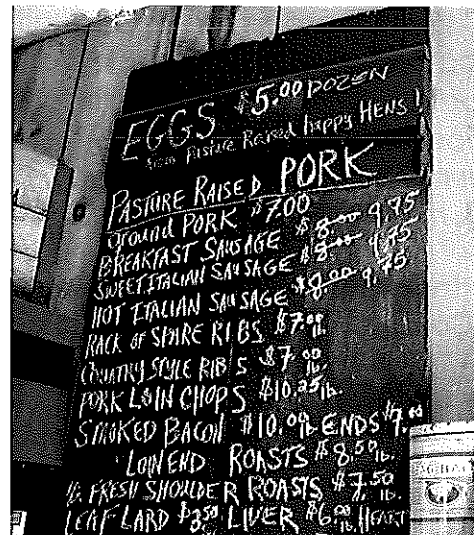 EGGS $5.00 DOZEN
from Pasture Raised happy HENS!
PASTURE RAISED PORK
Ground PORK $7.00
BREAKFAST SAUSAGE $8.00 9.75
SWEET ITALIAN SAUSAGE $8.00 9.75
HOT ITALIAN SAUSAGE $8.00 9.75
RACK OF SPARE RIBS $7.00 lb.
COUNTRY STYLE RIBS $7.00 lb.
PORK LOIN CHOPS $10.25 lb.
SMOKED BACON $10.00 lb. ENDS $7.00
LOIN END ROASTS $8.50 lb.
FRESH SHOULDER ROASTS $7.50 lb.
LEAF LARD $3.50 LIVER $6.00 lb. HEART